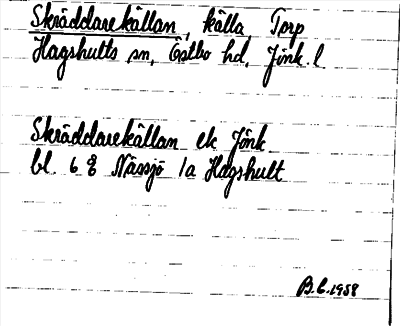 Skräddarekällan, källa, Torp
Hagshults sn, Östbo hd, Jönk. l.
Skräddarekällan ek Jönk.
bl. 6 E Nässjö 1a Hagshult
B.E. 1958